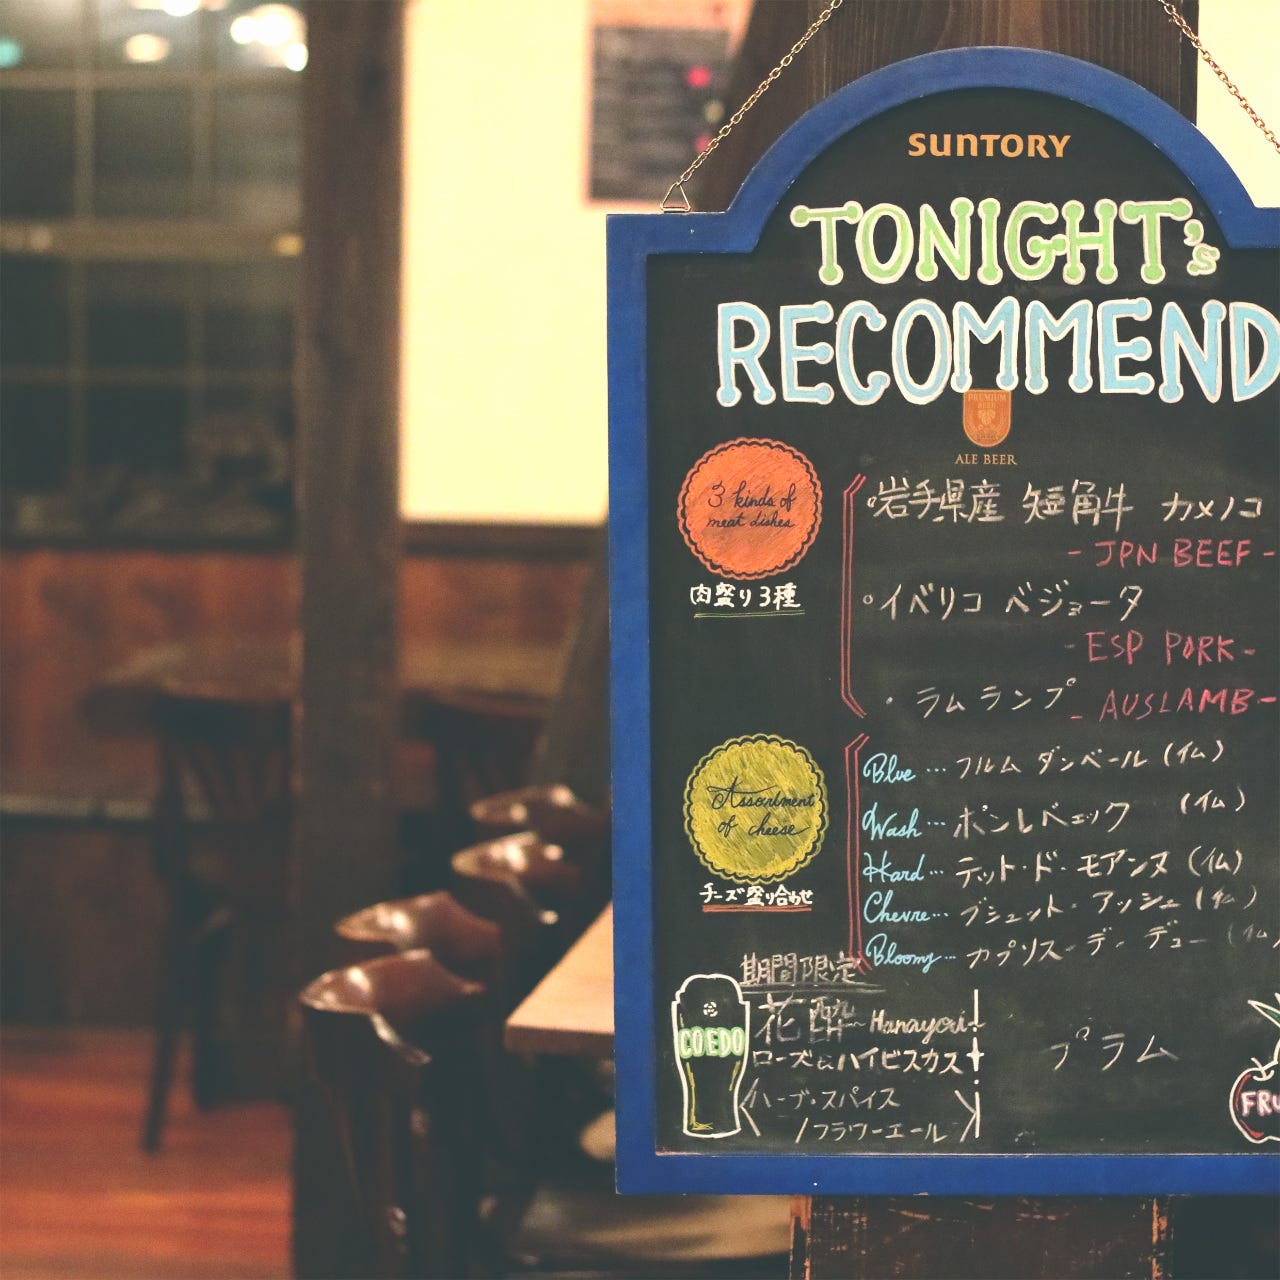 SUNTORY
TONIGHT's
RECOMMEND
PREMIUM
BEER
ALE BEER
3 kinds of
meat dishes
肉盛り3種
岩手県産 短角牛 カメノコ
- JPN BEEF -
イベリコ ベジョータ
- ESP PORK -
・ラムランプ - AUSLAMB -
Assortment
of cheese
チーズ盛り合わせ
Blue … フルム ダンベール (仏)
Wash … ポンレベェック (仏)
Hard … テット・ド・モアンヌ (仏)
Chevre … ブシェット・アッシュ (仏)
Bloomy … カプリス・デ・デュー (仏)
期間限定
COEDO
花酔 Hanayoi
ローズ&ハイビスカス
ハーブ・スパイス
/フラワーエール
プラム
FRU